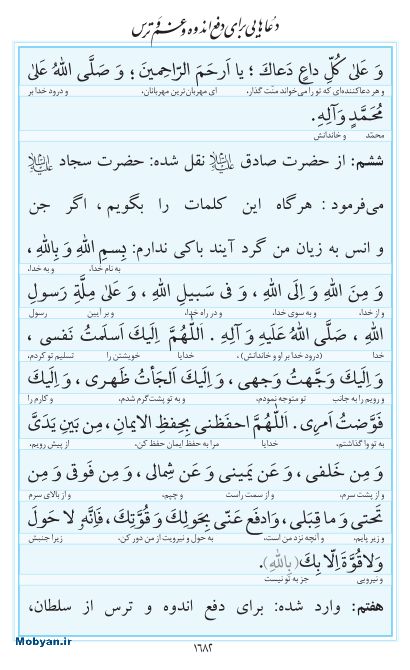 دعاهایی برای دفع اندوه و غم و ترس
وَ عَلىٰ كُلِّ داعٍ دَعاكَ ؛ يا اَرحَمَ الرّاحِمينَ ؛ وَ صَلَّى اللهُ عَلىٰ
و هر دعاکننده‌ای که تو را می‌خواند منّت گذار، ای مهربان‌ترین مهربانان، و درود خدا بر
مُحَمَّدٍ وَآلِهِ.
محمّد و خاندانش
ششم: از حضرت صادق علیه‌السلام نقل شده: حضرت سجاد علیه‌السلام
می‌فرمود : هرگاه این کلمات را بگویم ، اگر جن
و انس به زیان من گرد آیند باکی ندارم: بِسمِ اللهِ وَ بِاللهِ ،
به نام خدا، و به خدا،
وَ مِنَ اللهِ وَ اِلَى اللهِ ، وَ فى سَبيلِ اللهِ ، وَ عَلىٰ مِلَّةِ رَسولِ
و از خدا، و به سوی خدا، و در راه خدا، و بر آیین رسول
اللهِ ، صَلَّى اللهُ عَلَيهِ وَ آلِهِ . اَللّهُمَّ اِلَيكَ اَسلَمتُ نَفسى ،
خدا (درود خدا بر او و خاندانش) ، خدایا خویشتن را تسلیم تو کردم،
وَ اِلَيكَ وَجَّهتُ وَجهى ، وَ اِلَيكَ اَلجَأتُ ظَهرى ، وَ اِلَيكَ
و رویم را به جانب تو متوجه نمودم، و به تو پشت‌گرم شدم، و کارم را
فَوَّضتُ اَمرى . اَللّهُمَّ احفَظنى بِحِفظِ الايمانِ ، مِن بَينِ يَدَىَّ
به تو وا گذاشتم، خدایا مرا به حفظ ایمان حفظ کن، از پیش رویم،
وَ مِن خَلفى ، وَ عَن يَمينى وَ عَن شِمالى ، وَ مِن فَوقى وَ مِن
و از پشت سرم، و از سمت راست و چپم، و از بالای سرم
تَحتى وَ ما قِبَلى ، وَادفَع عَنّى بِحَولِكَ وَ قُوَّتِكَ ، فَاِنَّهُ لا حَولَ
و زیر پایم، و آنچه نزد من است، به حول و نیرویت از من دور کن، زیرا جنبش
وَلا قُوَّةَ اِلّا بِكَ (بِاللهِ).
و نیرویی جز به تو نیست
هفتم: وارد شده: برای دفع اندوه و ترس از سلطان،
۱۶۸۲
Mobyan.ir